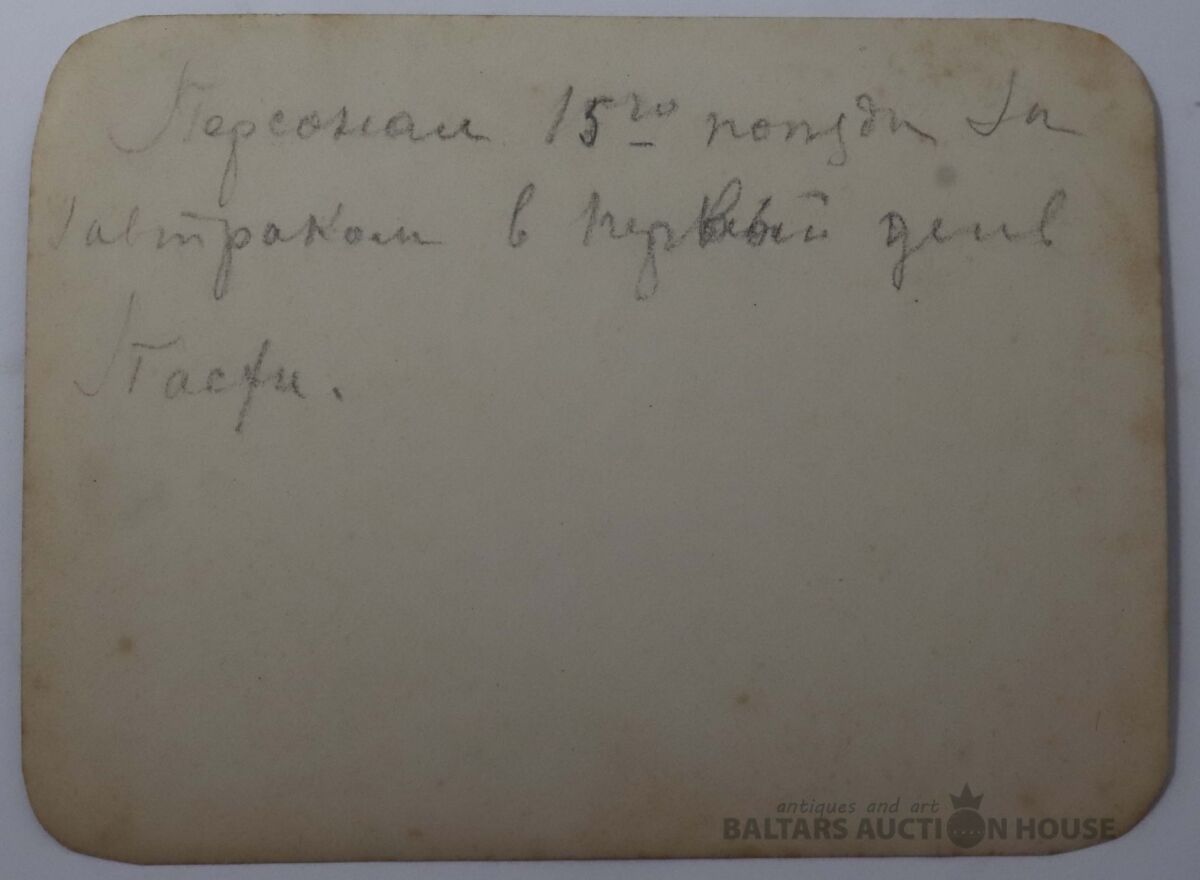 Персонал 15го поезда за
завтраком в первый день
Пасхи.
antiques and art
BALTARS AUCTION HOUSE